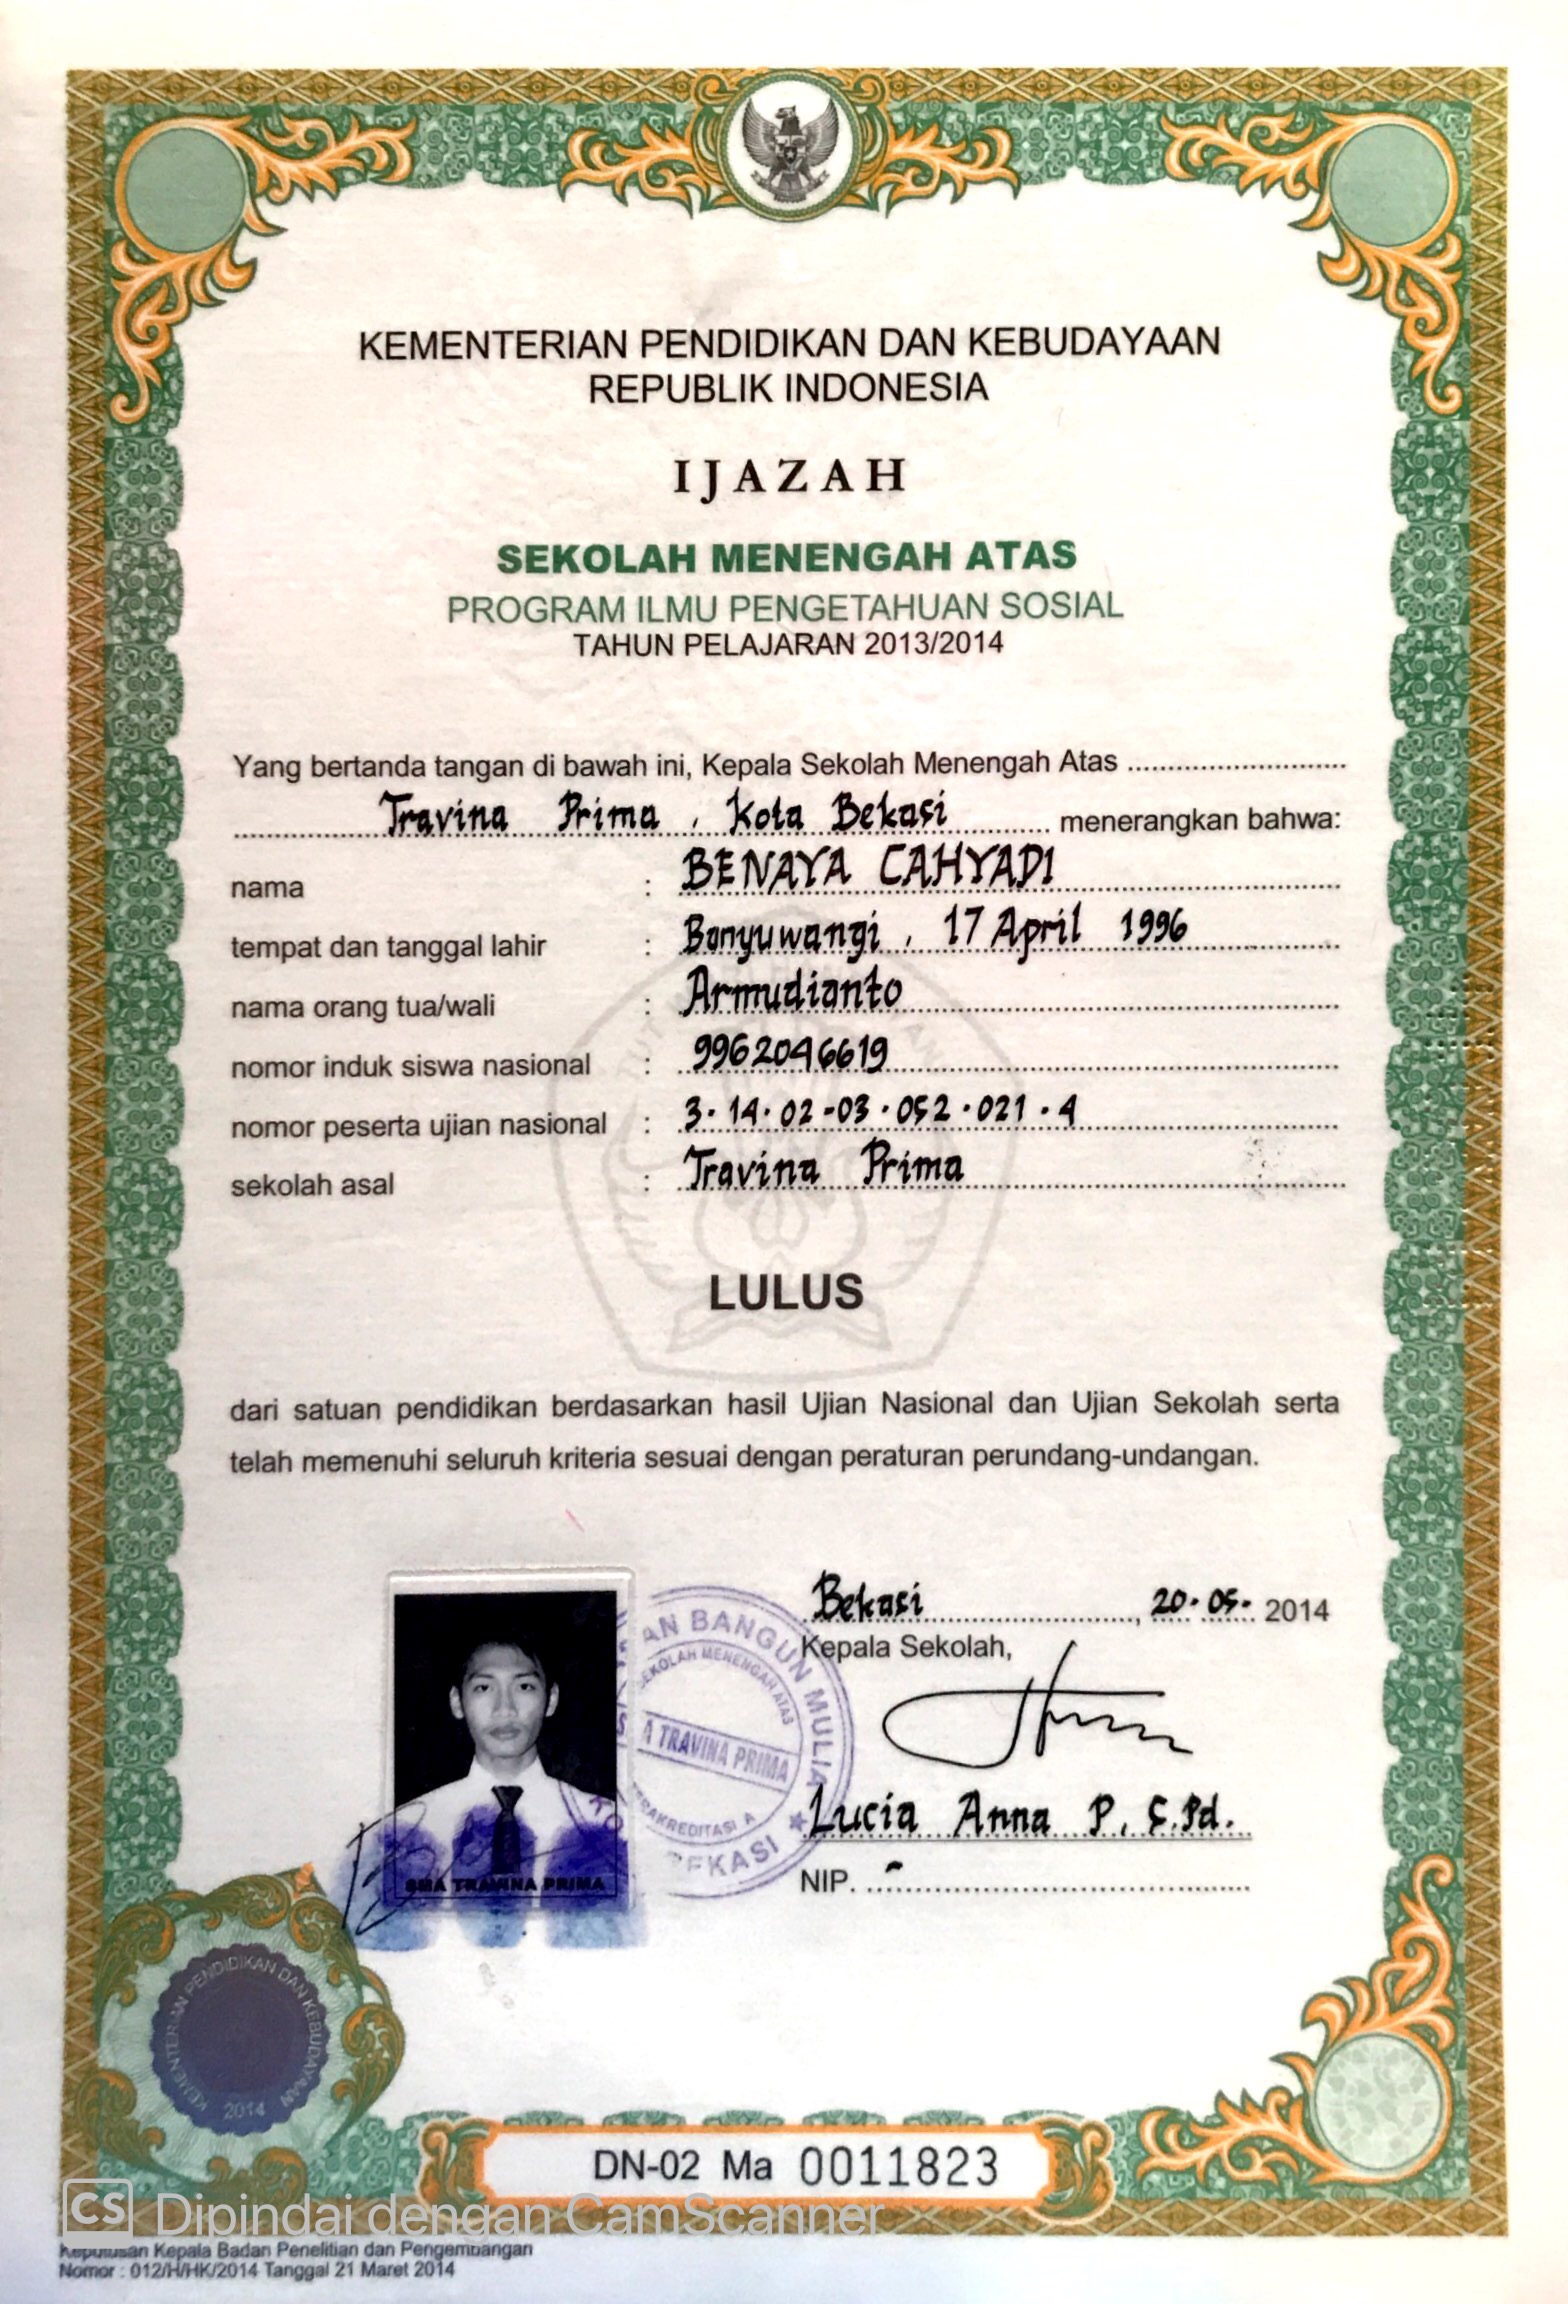 KEMENTERIAN PENDIDIKAN DAN KEBUDAYAAN
REPUBLIK INDONESIA
IJAZAH
SEKOLAH MENENGAH ATAS
PROGRAM ILMU PENGETAHUAN SOSIAL
TAHUN PELAJARAN 2013/2014
Yang bertanda tangan di bawah ini, Kepala Sekolah Menengah Atas
Travina Prima, Kota Bekasi menerangkan bahwa:
nama : BENAYA CAHYADI
tempat dan tanggal lahir : Banyuwangi, 17 April 1996
nama orang tua/wali : Armudianto
nomor induk siswa nasional : 9962046619
nomor peserta ujian nasional : 3-14-02-03-052-021-4
sekolah asal : Travina Prima
LULUS
dari satuan pendidikan berdasarkan hasil Ujian Nasional dan Ujian Sekolah serta
telah memenuhi seluruh kriteria sesuai dengan peraturan perundang-undangan.
Bekasi, 20-05-2014
Kepala Sekolah,
AN BANGUN MULIA
SEKOLAH MENENGAH ATAS
A TRAVINA PRIMA
TERAKREDITASI A
BEKASI
Lucia Anna P, S.Pd.
NIP. -
SMA TRAVINA PRIMA
KEMENTERIAN PENDIDIKAN DAN KEBUDAYAAN
2014
DN-02 Ma 0011823
CS Dipindai dengan CamScanner
Keputusan Kepala Badan Penelitian dan Pengembangan
Nomor : 012/H/HK/2014 Tanggal 21 Maret 2014